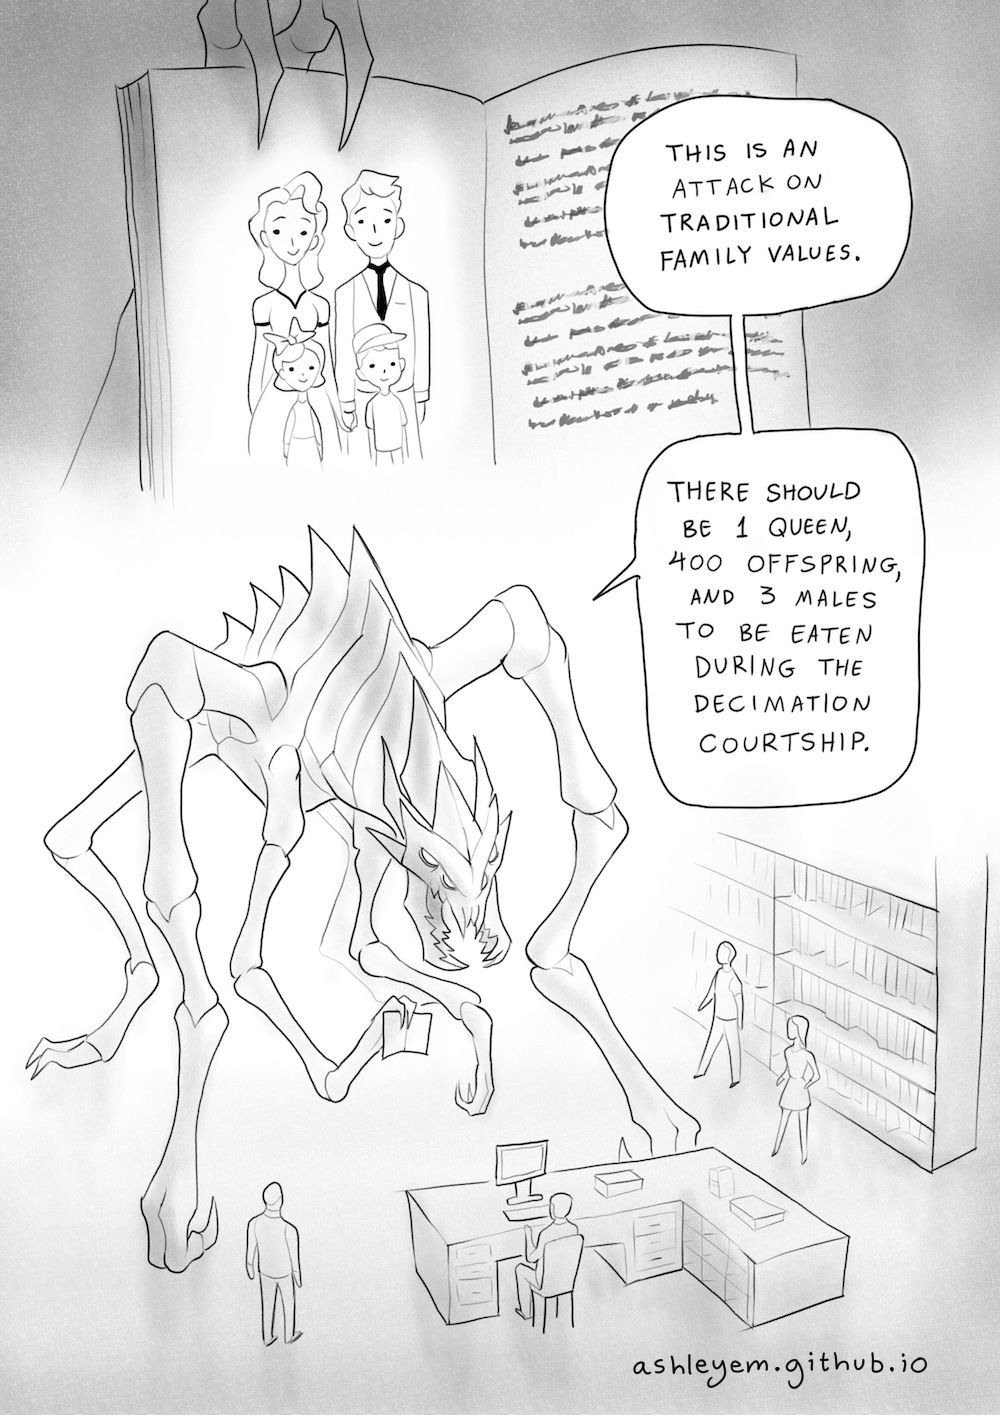 THIS IS AN
ATTACK ON
TRADITIONAL
FAMILY VALUES.
THERE SHOULD
BE 1 QUEEN,
400 OFFSPRING,
AND 3 MALES
TO BE EATEN
DURING THE
DECIMATION
COURTSHIP.
ashleyem.github.io